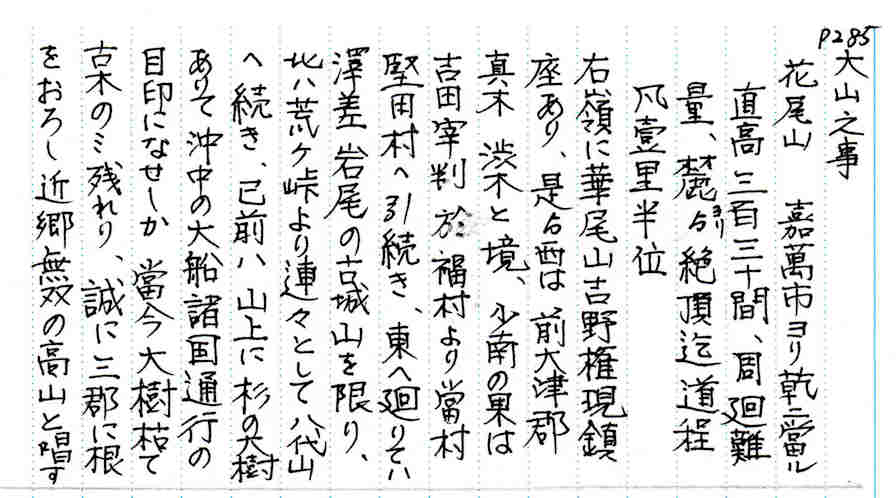 P285
大山之事
花尾山 嘉萬市ヨリ乾ニ當ル
直高三百三十間、周廻難
量、麓ゟ(ヨリ)絶頂迄道程
凡壹里半位
右嶺に華尾山吉野権現鎮
座あり、是ゟ西は前大津郡
真木 渋木と境、少南の果は
吉田宰判於福村より當村
堅田村へ引続き、東へ廻りてハ
澤差岩尾の古城山を限り、
北ハ荒ケ峠より連々として八代山
へ続き、已前ハ山上に杉の大樹
ありて沖中の大船諸国通行の
目印になせしか 當今大樹枯て
古木のミ残れり、誠に三郡に根
をおろし近郷無双の高山と唱す